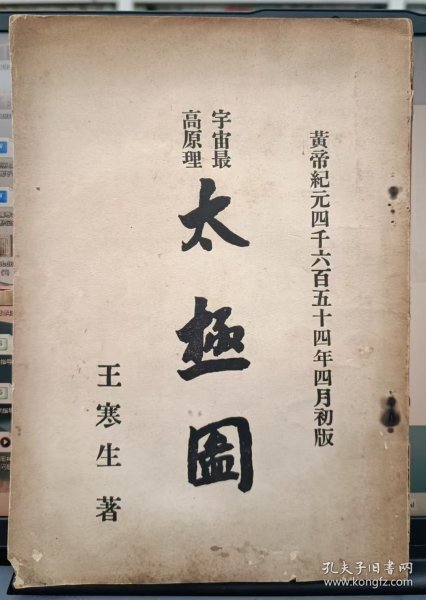 黃帝紀元四千六百五十四年四月初版
宇宙最
高原理
太極圖
王寒生著
孔夫子旧书网
www.kongfz.com